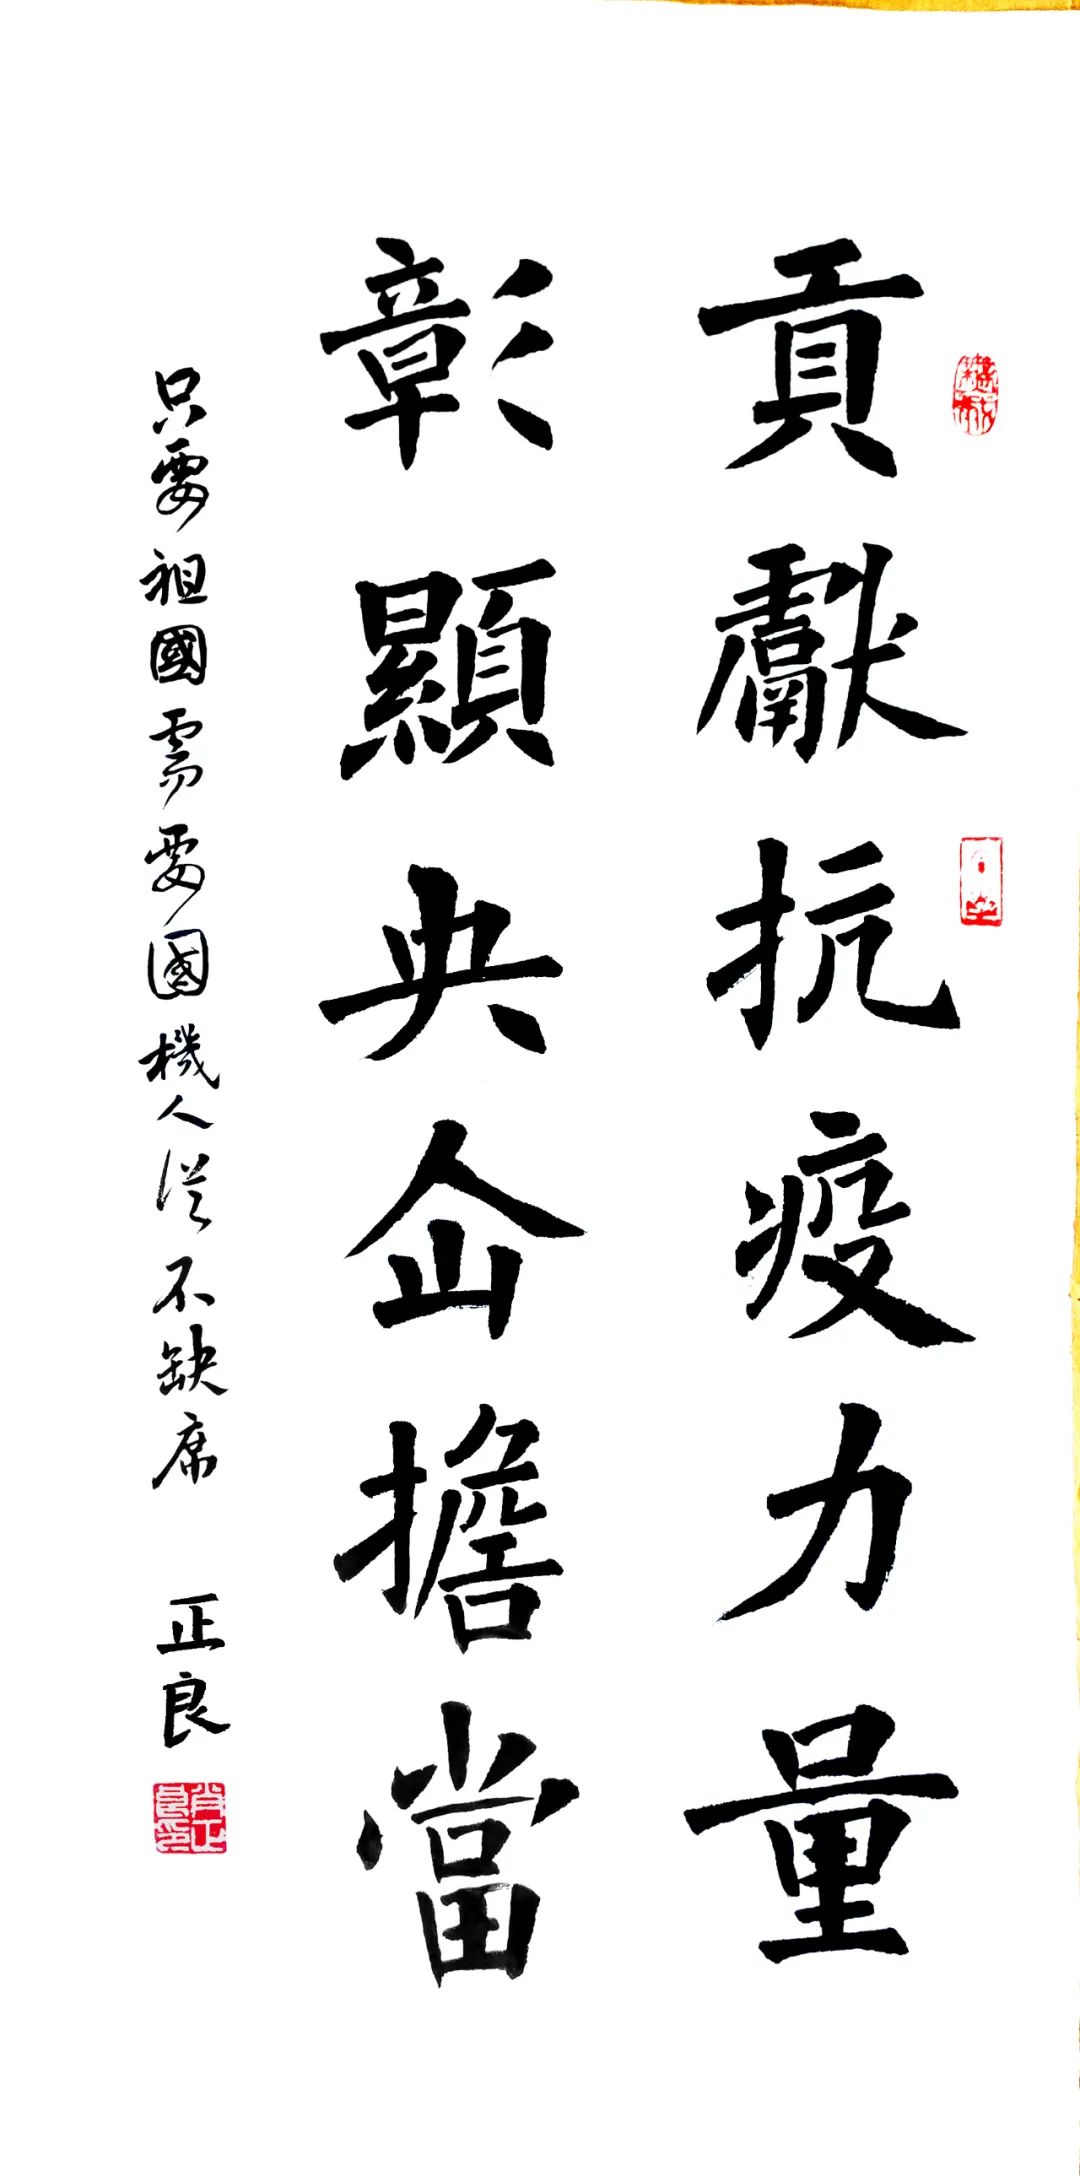 貢獻抗疫力量
彰顯央企擔當
只要祖國需要國機人從不缺席 正良
肖正良印